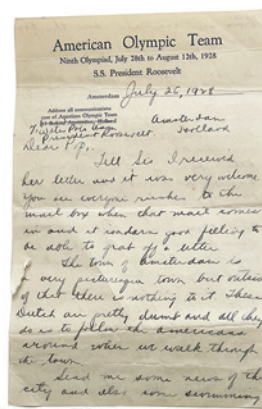 American Olympic Team
Ninth Olympiad, July 28th to August 12th, 1928
S.S. President Roosevelt
Amsterdam July 26, 1928
Address all communications
care of American Olympic Team
Amsterdam
President Roosevelt Holland
Dear Pop:
Tell Sis I received
her letter and it was very welcome
You see everyone rushes to the
mail box when that mail comes
in and it is a darn good feeling to
be able to grab off a letter
The town of Amsterdam is
a very picturesque town but outside
of that there is nothing to it. These
Dutch are pretty dumb and all they
do is to follow the americans
around when we walk through
the town.
Send me some news of the
city and also some swimming